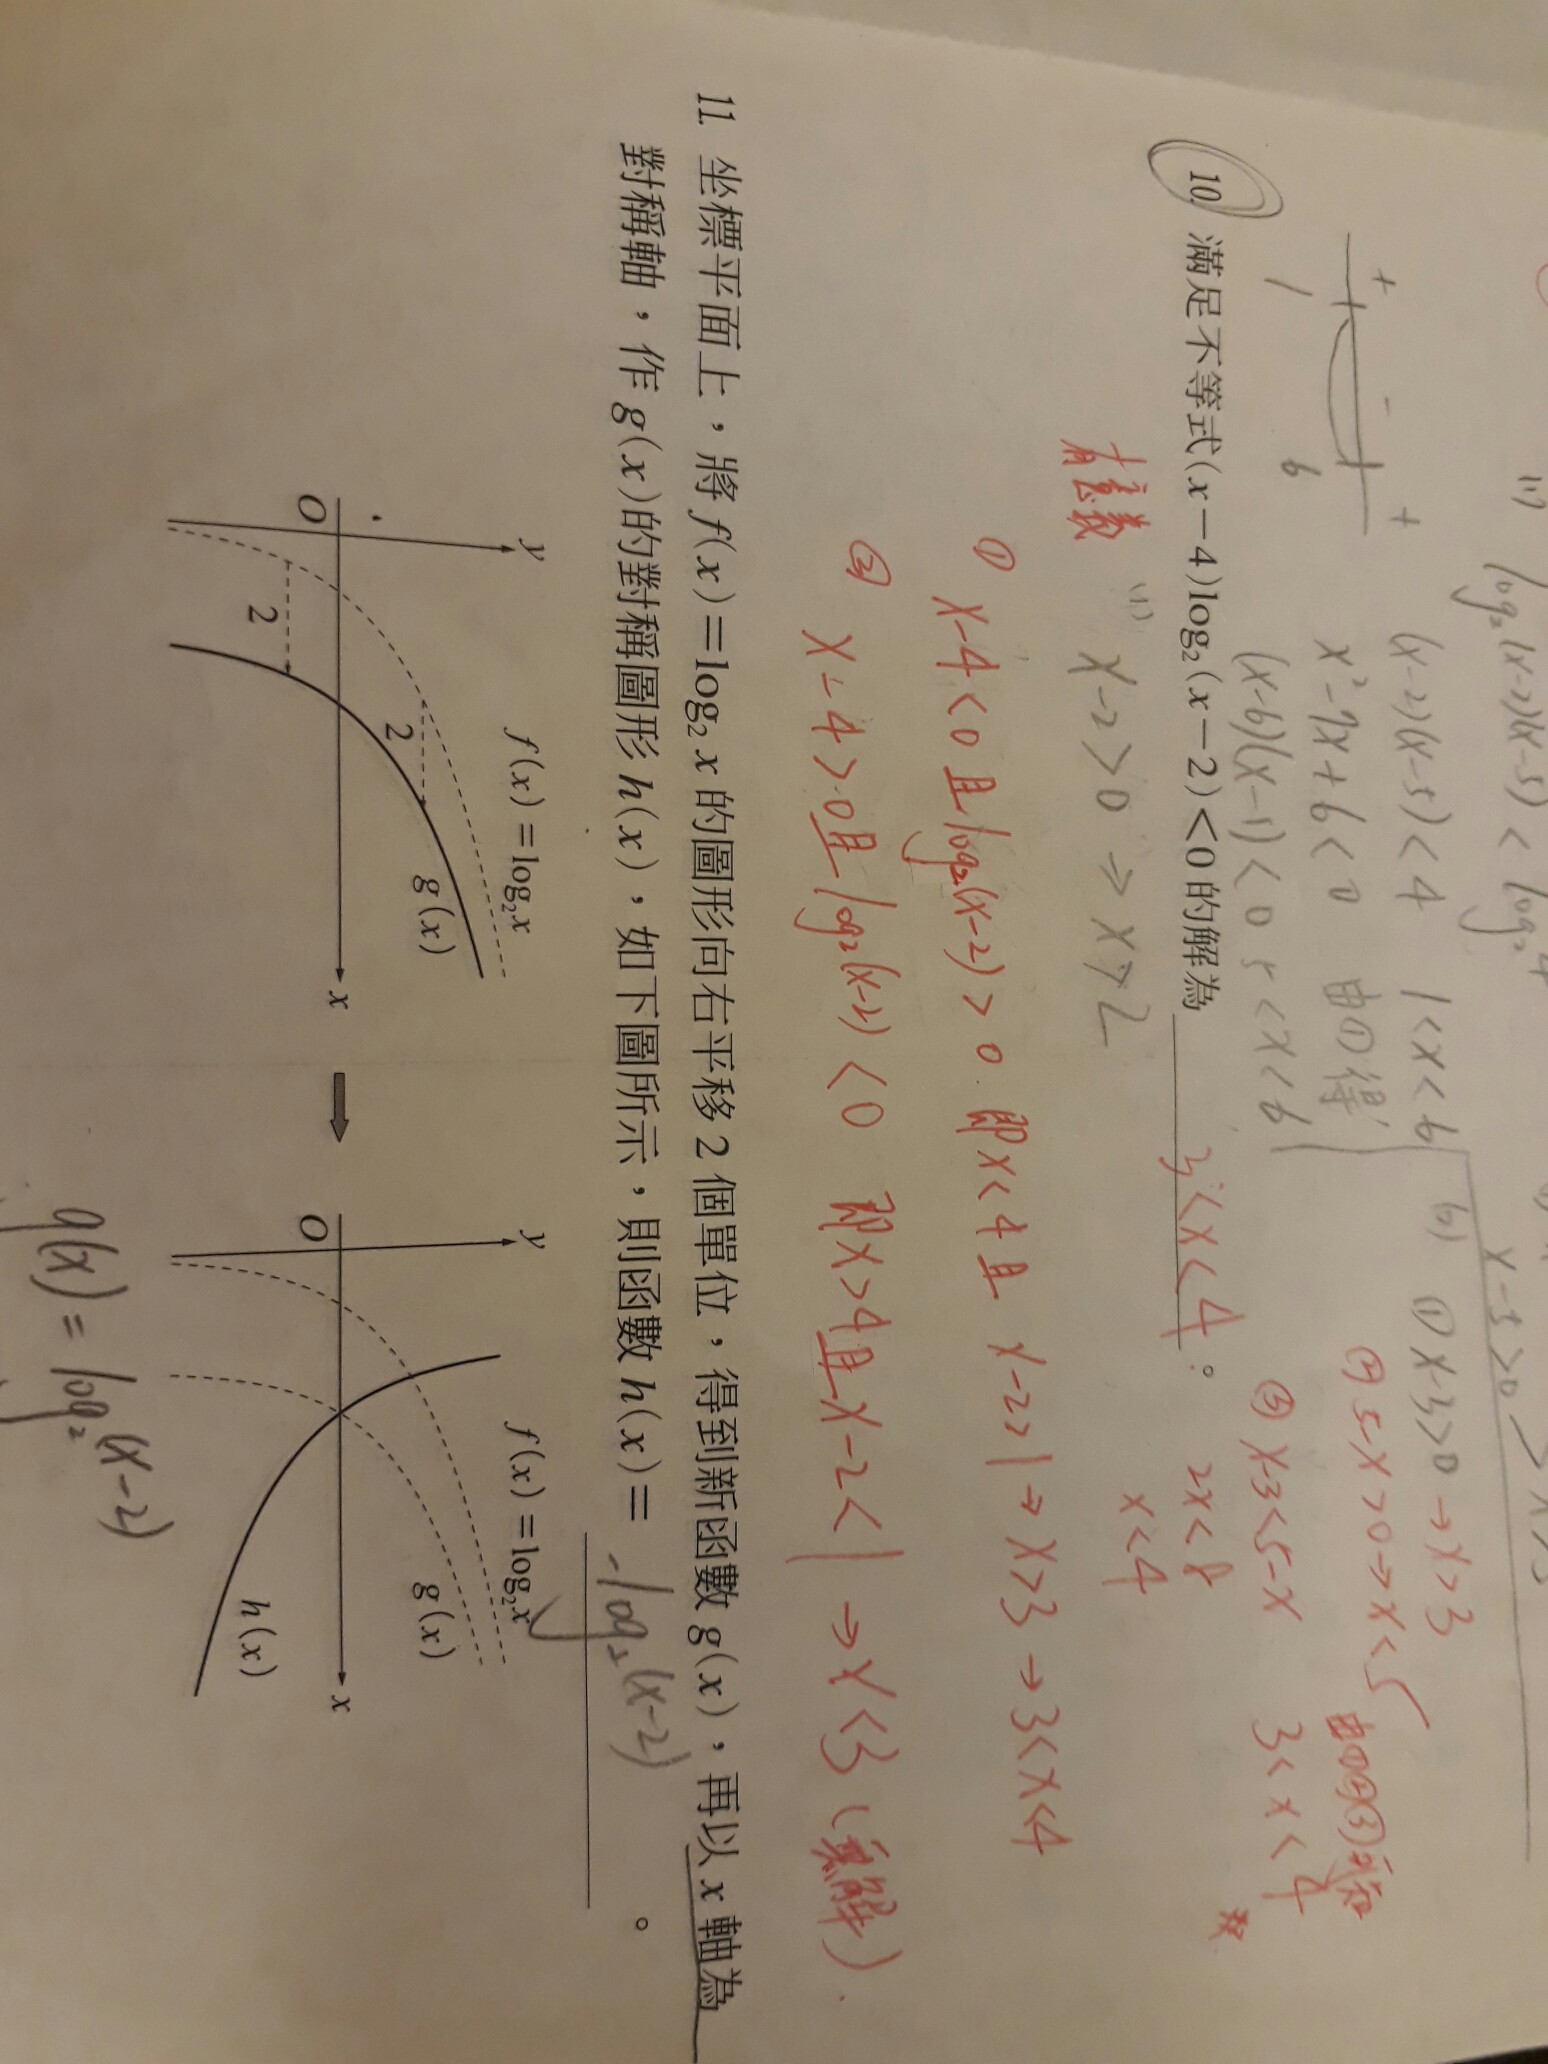 (1) log₂(x-2)(x-5) < log₂4
x-5>0
(x-2)(x-5)<4 1<x<6
x²-7x+6<0 由①得
(x-6)(x-1)<0 5<x<6
+ - +
1 6
(1) x-3>0 → x>3
② 5-x>0 → x<5
③ x-3<5-x
2x<8
x<4
由①②③可知
3<x<4
10. 滿足不等式(x-4)log₂(x-2)<0的解為 3<x<4 。
有意義 (1) x-2>0 ⇒ x>2
① x-4<0 且 log₂(x-2)>0 即x<4 且 x-2>1 → x>3 → 3<x<4
② x-4>0 且 log₂(x-2)<0 即x>4 且 x-2<1 → x<3 (無解).
11. 坐標平面上，將 f(x)=log₂x 的圖形向右平移 2 個單位，得到新函數 g(x)，再以 x 軸為
對稱軸，作 g(x)的對稱圖形 h(x)，如下圖所示，則函數 h(x)= -log₂(x-2) 。
y
f(x)=log₂x
g(x)
2
2
O
x
y
f(x)=log₂x
g(x)
h(x)
O
x
g(x) = log₂(x-2)